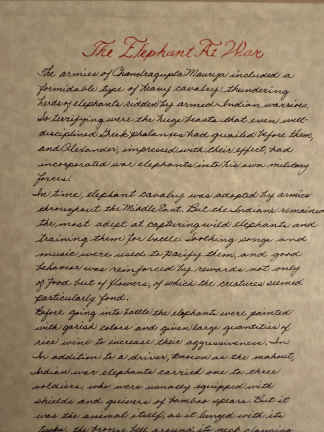 The Elephant At War
The armies of Chandragupta Maurya included a
formidable type of heavy cavalry: thundering
herds of elephants ridden by armed Indian warriors.
So terrifying were the huge beasts that even well-
disciplined Greek phalanxes had quailed before them,
and Alexander, impressed with their effect, had
incorporated war elephants into his own military
forces.
In time, elephant cavalry was adopted by armies
throughout the Middle East. But the Indians remained
the most adept at capturing wild elephants and
training them for battle. Soothing songs and
music were used to pacify them, and good
behavior was reinforced by rewards not only
of food but of flowers, of which the creatures seemed
particularly fond.
Before going into battle the elephants were painted
with garish colors and given large quantities of
rice wine to increase their aggressiveness. In
In addition to a driver, known as the mahout,
Indian war elephants carried one to three
soldiers who were usually equipped with
shields and quivers of bamboo spears. But it
was the animal itself, as it lunged with its
tusks, the bronze bell around its neck clanging